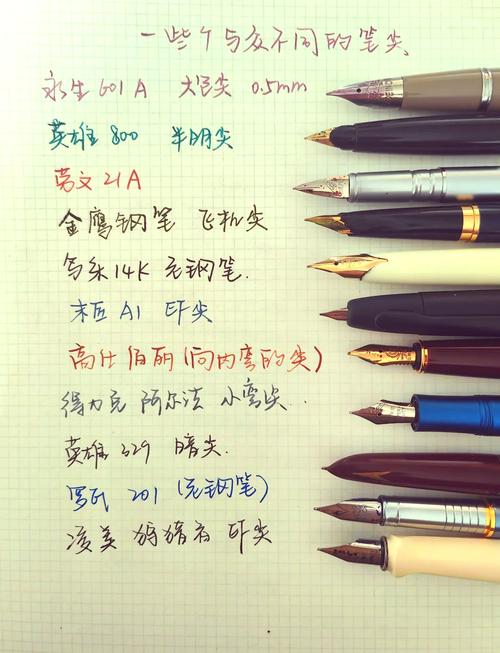 一些个与众不同的笔尖
永生 601 A 大包尖 0.5mm
英雄 800 半明尖
英文 21A
金鹰钢笔 飞机尖
14K 钢笔.
末匠 A1 EF尖
高仕 佰丽 (向内弯的尖)
得力克 阿尔法 小弯尖
英雄 329 暗尖.
201 (钢笔)
凌美 狩猎者 EF尖